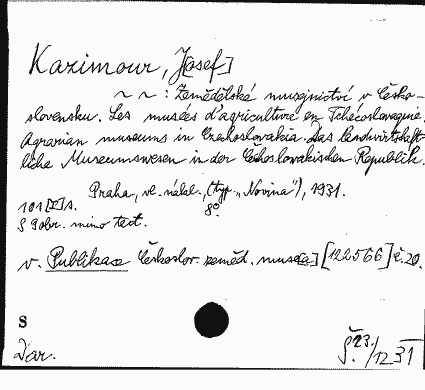 Kazimour, J[osef]
~ ~ : Zemědělské musejnictví v Česko-
slovensku. Les musées d'agriculture en Tchécoslovaquie.
Agrarian museums in Czechoslovakia. Das landwirtschaft-
liche Museumswesen in der Čechoslovakischen Republik.
Praha, vl. nákl., (typ. „Novina"), 1931.
101 [V] s. 8°.
S 9 obr. mimo text.
v. Publikace Českoslov. zeměd. musea] [122566] č. 20.
S
Dar. Š. 23./12 31